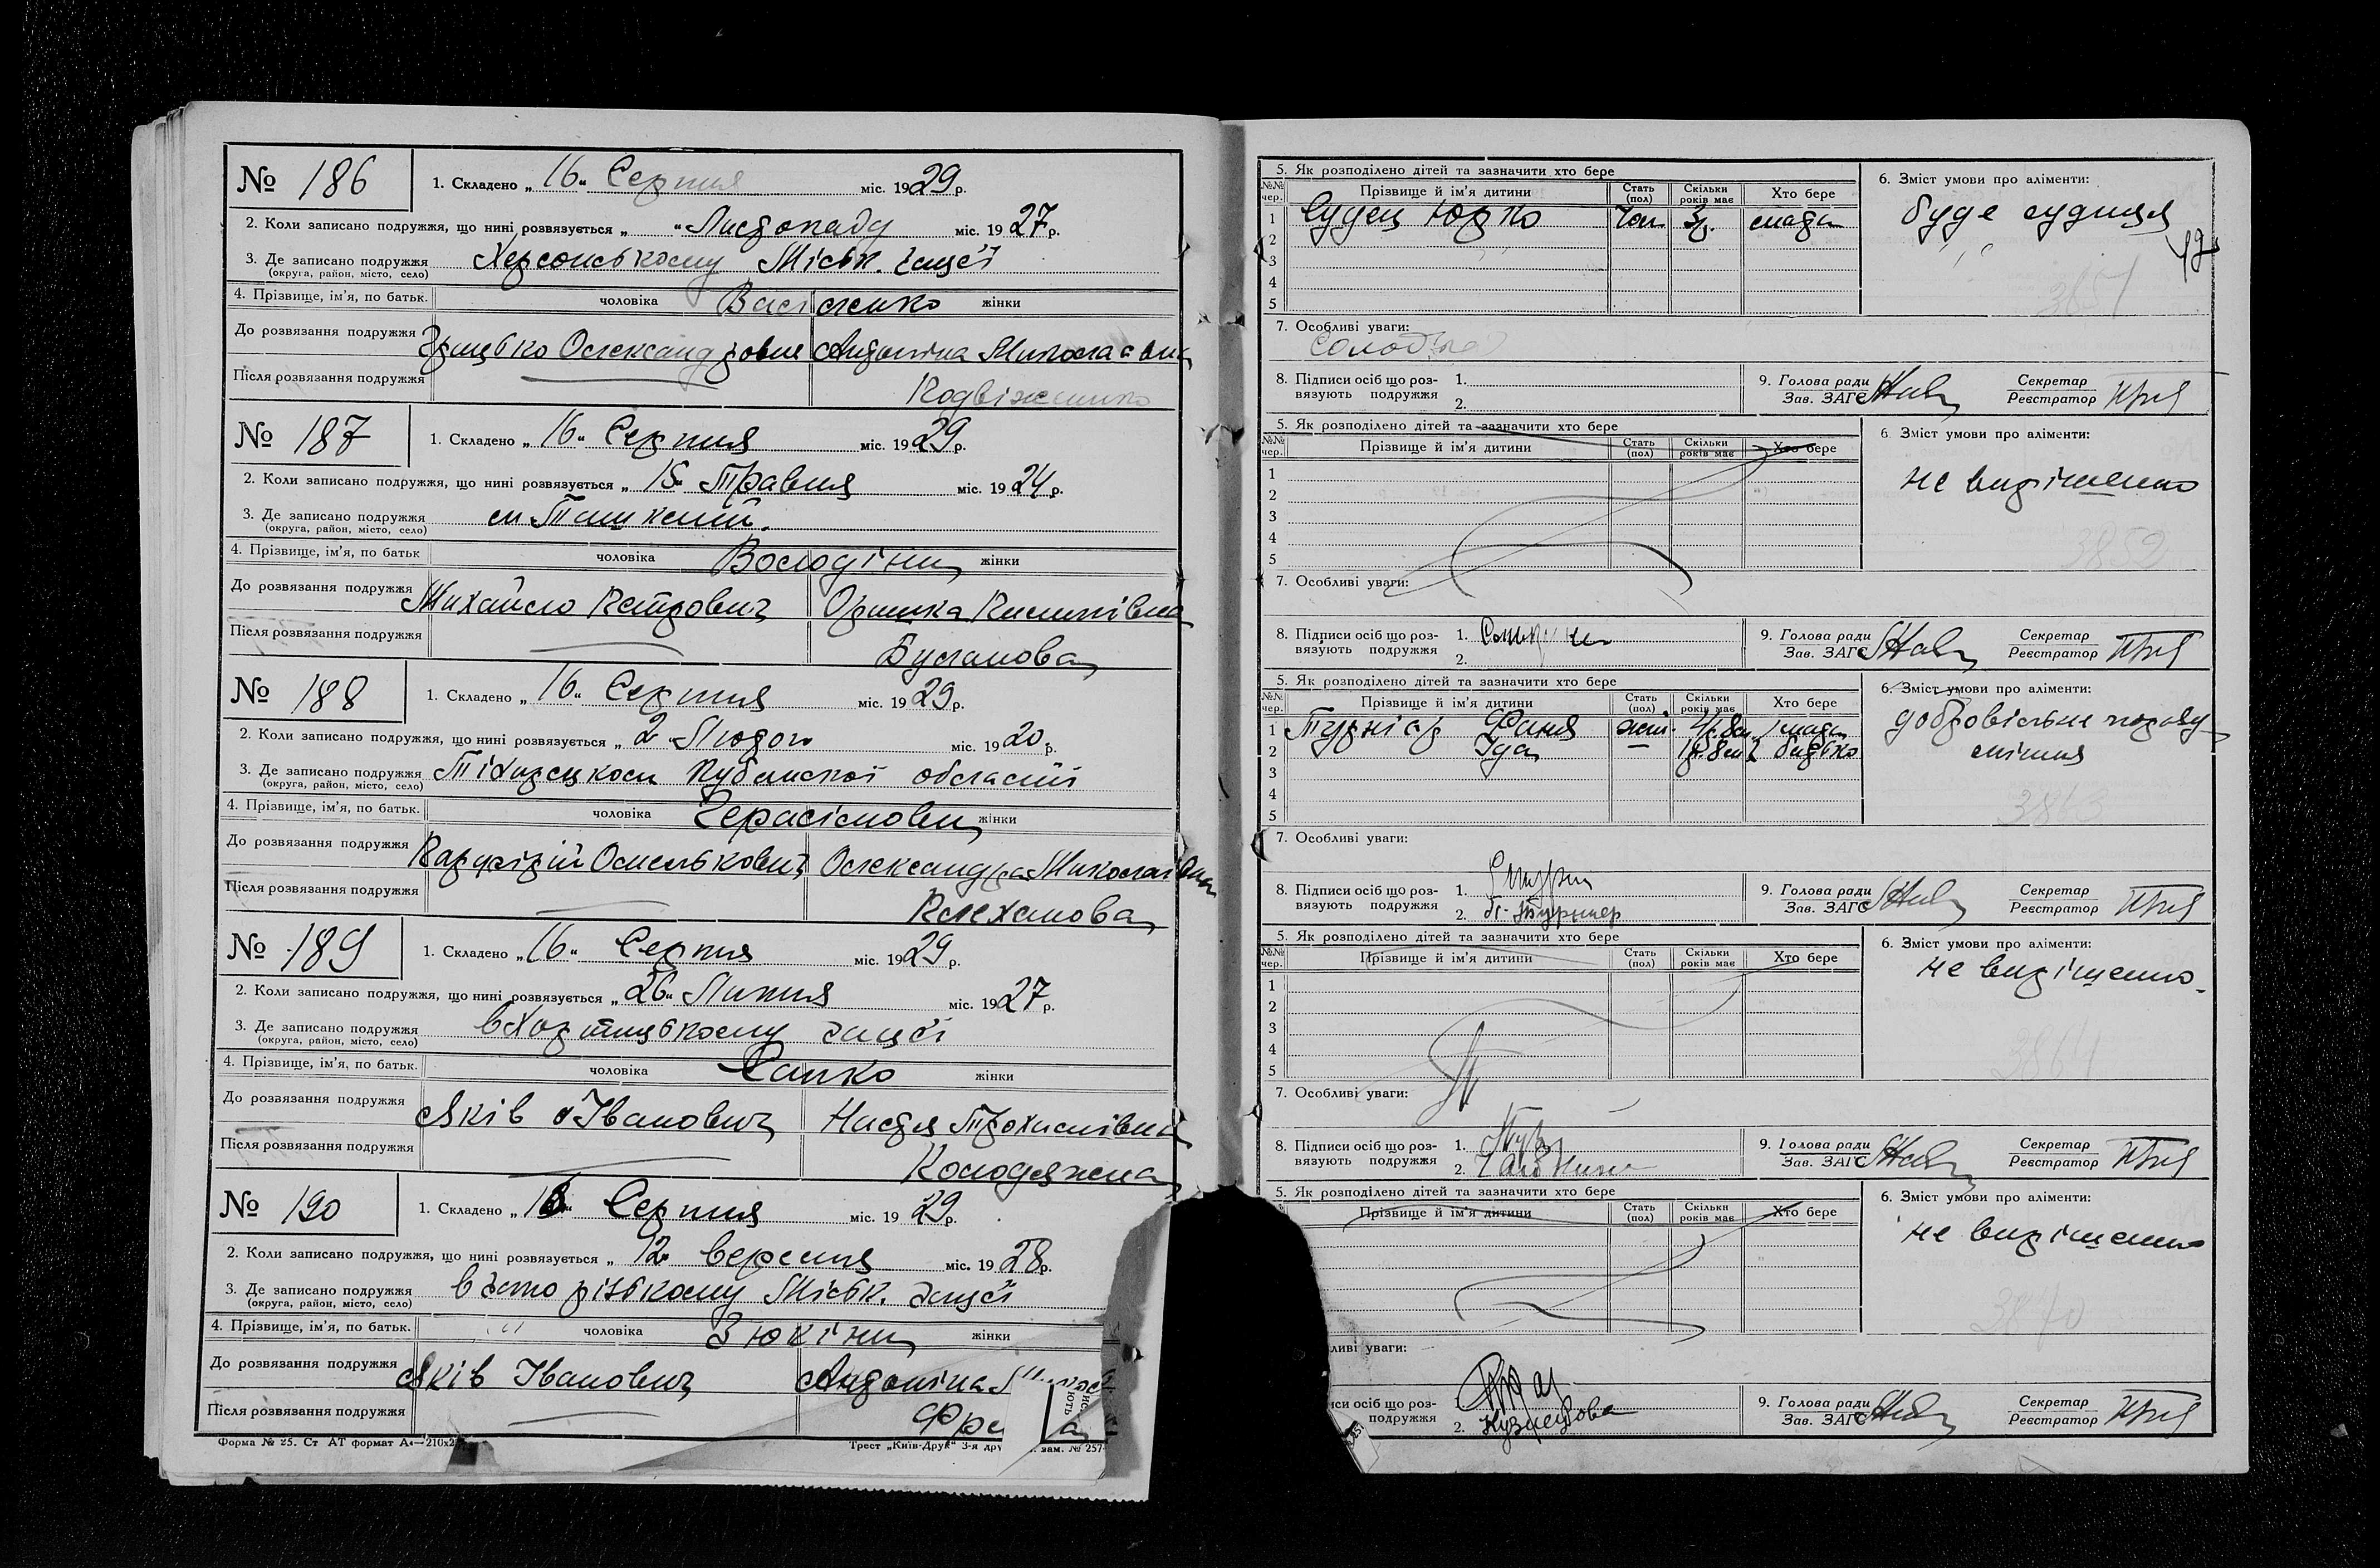 № 186
1. Складено „ 16 " Серпня міс. 1929 р.
2. Коли записано подружжя, що нині розвязується „ " Листопаду міс. 1927 р.
3. Де записано подружжя Херсонському Міськ. Загсі
(округа, район, місто, село)
4. Прізвище, ім'я, по батьк. чоловіка жінки
До розвязання подружжя Грицько Олександрович Андоніна Миколаєвна
Після розвязання подружжя
№ 187
1. Складено „ 16 " Серпня міс. 1929 р.
2. Коли записано подружжя, що нині розвязується „ 15 " Травня міс. 1924 р.
3. Де записано подружжя м Ташкент.
(округа, район, місто, село)
4. Прізвище, ім'я, по батьк чоловіка Володіни жінки
До розвязання подружжя Михайло Петрович Оришка Пилипівна
Після розвязання подружжя Бусланова
№ 188
1. Складено „ 16 " Серпня міс. 1929 р.
2. Коли записано подружжя, що нині розвязується „ 2 " Лютого міс. 1920 р.
3. Де записано подружжя Тіхорецком Кубанскої області
(округа, район, місто, село)
4. Прізвище, ім'я, по батьк. чоловіка Герасімови жінки
До розвязання подружжя Омелькович Олександра Миколаївна
Після розвязання подружжя Плеханова
№ 189
1. Складено „ 16 " Серпня міс. 1929 р.
2. Коли записано подружжя, що нині розвязується „ 26 " Липня міс. 1927 р.
3. Де записано подружжя в Хортицькому загсі
(округа, район, місто, село)
4. Прізвище, ім'я, по батьк. чоловіка Сапко жінки
До розвязання подружжя Яків Іванович Настя Трохимівна
Після розвязання подружжя Колодяжна
№ 190
1. Складено „ 16 " Серпня міс. 1929 р.
2. Коли записано подружжя, що нині розвязується „ 12 " вересня міс. 1928 р.
3. Де записано подружжя в Запорізькому Міськ. загсі
(округа, район, місто, село)
4. Прізвище, ім'я, по батьк. чоловіка Зюкіни жінки
До розвязання подружжя Яків Іванович Андоніна
Після розвязання подружжя
Форма № 25. Ст АТ формат А4—210х2
Трест „Київ-Друк" 3-я дру зам. № 257
5. Як розподілено дітей та зазначити хто бере
№№ чер. Прізвище й ім'я дитини Стать (пол) Скільки років має Хто бере
1 Судец Юрко Чол. 3р. мати
2
3
4
5
6. Зміст умови про аліменти:
буде судиця
3851
7. Особливі уваги:
8. Підписи осіб що розвязують подружжя 1.
2.
9. Голова ради
Зав. ЗАГС
Секретар
Реєстратор
5. Як розподілено дітей та зазначити хто бере
№№ чер. Прізвище й ім'я дитини Стать (пол) Скільки років має Хто бере
1
2
3
4
5
6. Зміст умови про аліменти:
не вирішено
3852
7. Особливі уваги:
8. Підписи осіб що розвязують подружжя 1.
2.
9. Голова ради
Зав. ЗАГС
Секретар
Реєстратор
5. Як розподілено дітей та зазначити хто бере
№№ чер. Прізвище й ім'я дитини Стать (пол) Скільки років має Хто бере
1 Фаня жін. мати
2 Іда — 1р. 8м батько
3
4
5
6. Зміст умови про аліменти:
добровільне порозу
міння
7. Особливі уваги:
8. Підписи осіб що розвязують подружжя 1.
2.
9. Голова ради
Зав. ЗАГС
Секретар
Реєстратор
5. Як розподілено дітей та зазначити хто бере
№№ чер. Прізвище й ім'я дитини Стать (пол) Скільки років має Хто бере
1
2
3
4
5
6. Зміст умови про аліменти:
не вирішено
3864
7. Особливі уваги:
8. Підписи осіб що розвязують подружжя 1.
2.
9. Голова ради
Зав. ЗАГС
Секретар
Реєстратор
5. Як розподілено дітей та зазначити хто бере
Прізвище й ім'я дитини Стать (пол) Скільки років має Хто бере
6. Зміст умови про аліменти:
не вирішено
3870
ливі уваги:
иси осіб що роз-
подружжя
2. Кузнецова
9. Голова ради
Зав. ЗАГС
Секретар
Реєстратор